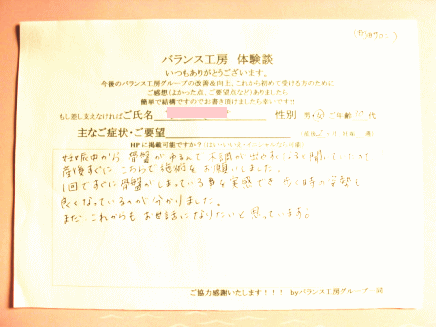 バランス工房 体験談
いつもありがとうございます。
今後のバランス工房グループの改善&向上、これから初めて受ける方のために
ご感想(よかった点、ご要望点など)ありましたら
簡単で結構ですのでお書き頂けましたら幸いです!!
もし差し支えなければご氏名 性別 男・女 ご年齢 代
主なご症状・ご要望
HPに掲載可能ですか?
妊娠中から骨盤がゆるんで
産後すぐに こちらで施術をお願いしました。
1回ですぐに骨盤がしまっている事を実感でき、歩く時の姿勢も
良くなっているのが分かりました。
まだ、これからもお世話になりたいと思っています。
ご協力感謝いたします!!! byバランス工房グループ一同